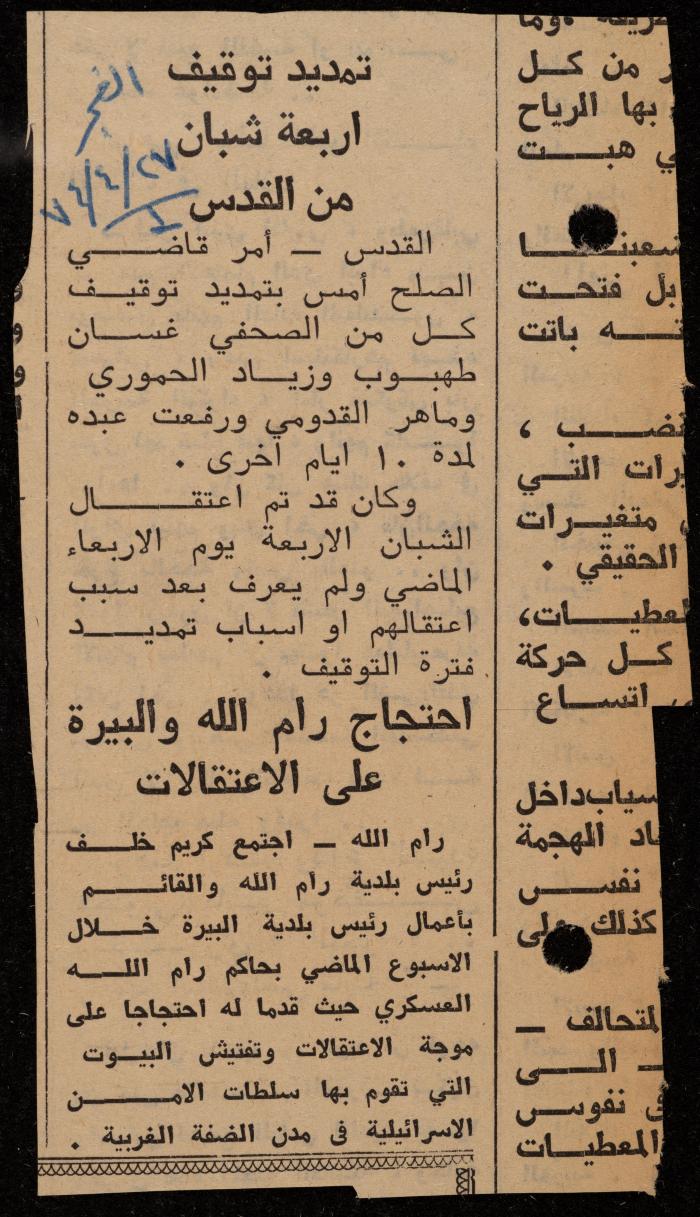 تمديد توقيف
اربعة شبان
من القدس
الفجر
٧٤/٤/٢٧
القدس ــ أمر قاضي
الصلح أمس بتمديد توقيف
كل من الصحفي غسان
طهبوب وزياد الحموري
وماهر القدومي ورفعت عبده
لمدة ١٠ ايام اخرى .
وكان قد تم اعتقال
الشبان الاربعة يوم الاربعاء
الماضي ولم يعرف بعد سبب
اعتقالهم او اسباب تمديد
فترة التوقيف .
احتجاج رام الله والبيرة
على الاعتقالات
رام الله ــ اجتمع كريم خلف
رئيس بلدية رام الله والقائم
بأعمال رئيس بلدية البيرة خلال
الاسبوع الماضي بحاكم رام الله
العسكري حيث قدما له احتجاجا على
موجة الاعتقالات وتفتيش البيوت
التي تقوم بها سلطات الامن
الاسرائيلية في مدن الضفة الغربية .
من كل
بها الرياح
هبت
بل فتحت
باتت
التي
متغيرات
الحقيقي .
كل حركة
اتساع
داخل
الهجمة
نفس
كذلك على
لمتحالف ــ
ــ الى
نفوس
المعطيات